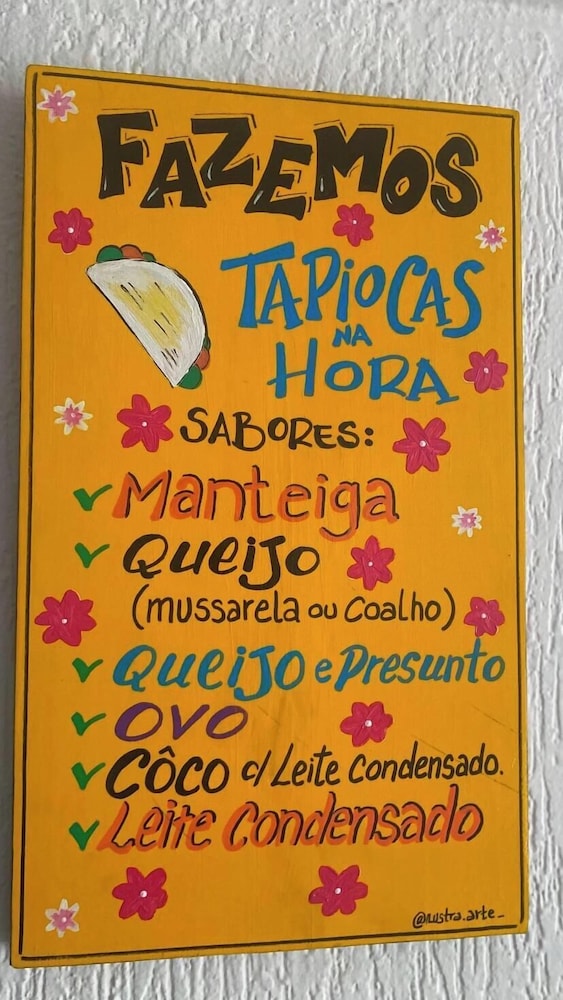 FAZEMOS
TAPIOCAS
NA
HORA
SABORES:
Manteiga
Queijo
(mussarela ou Coalho)
Queijo e Presunto
OVO
CÔCO c/ Leite Condensado.
Leite Condensado